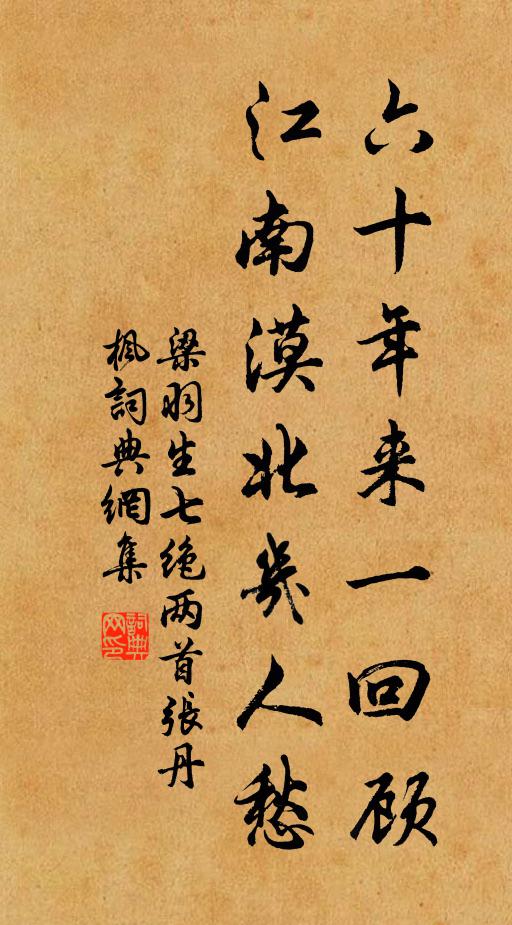 六十年来一回顾
江南漠北几人愁
梁羽生七绝两首張丹
楓詞典網集
詞典网印